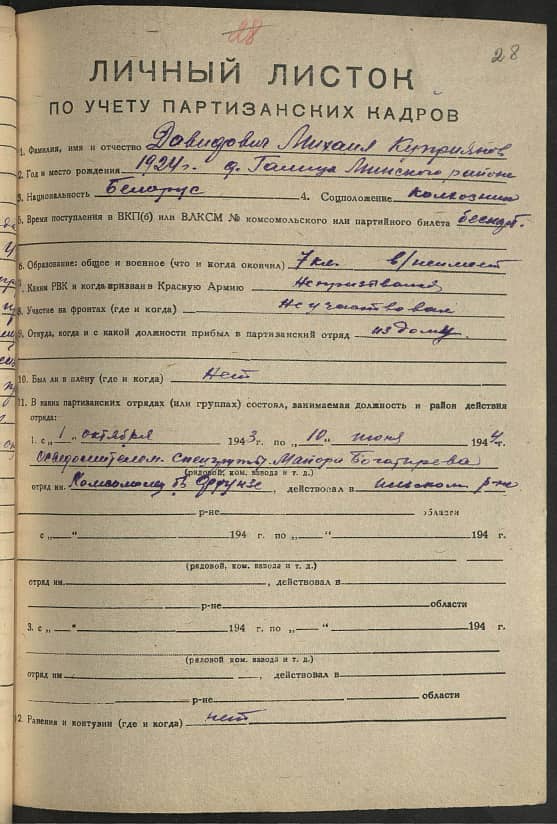 28 28
ЛИЧНЫЙ ЛИСТОК
ПО УЧЕТУ ПАРТИЗАНСКИХ КАДРОВ
1. Фамилия, имя и отчество Давидович Михаил Куприянов
2. Год и место рождения 1924 г. д. Галица Минского района
3. Национальность Белорус 4. Соцположение колхозник
5. Время поступления в ВКП(б) или ВЛКСМ № комсомольского или партийного билета беспарт.
6. Образование: общее и военное (что и когда окончил) 7 кл. в/неимеет
7. Каким РВК и когда призван в Красную Армию Непризывался
8. Участие на фронтах (где и когда) Не участвовал
9. Откуда, когда и с какой должности прибыл в партизанский отряд из дому.
10. Был ли в плену (где и когда) Нет
11. В каких партизанских отрядах (или группах) состоял, занимаемая должность и район действия
отряда:
1. с „1" октября 1943 г. по „10" июня 1944 г.
Осведомителем спецгруппы Майора Богатирева
(рядовой, ком. взвода и т. д.)
отряд им. Комсомолец бр Фрунзе, действовал в Ильском р-не
р-не области
с „ " 194 г. по „ " 194 г.
(рядовой, ком. взвода и т. д.)
отряд им. , действовал в
р-не области
3. с „ " 194 г. по „ " 194 г.
(рядовой ком. взвода и т. д.)
отряд им , действовал в
р-не области
12. Ранения и контузии (где и когда) нет